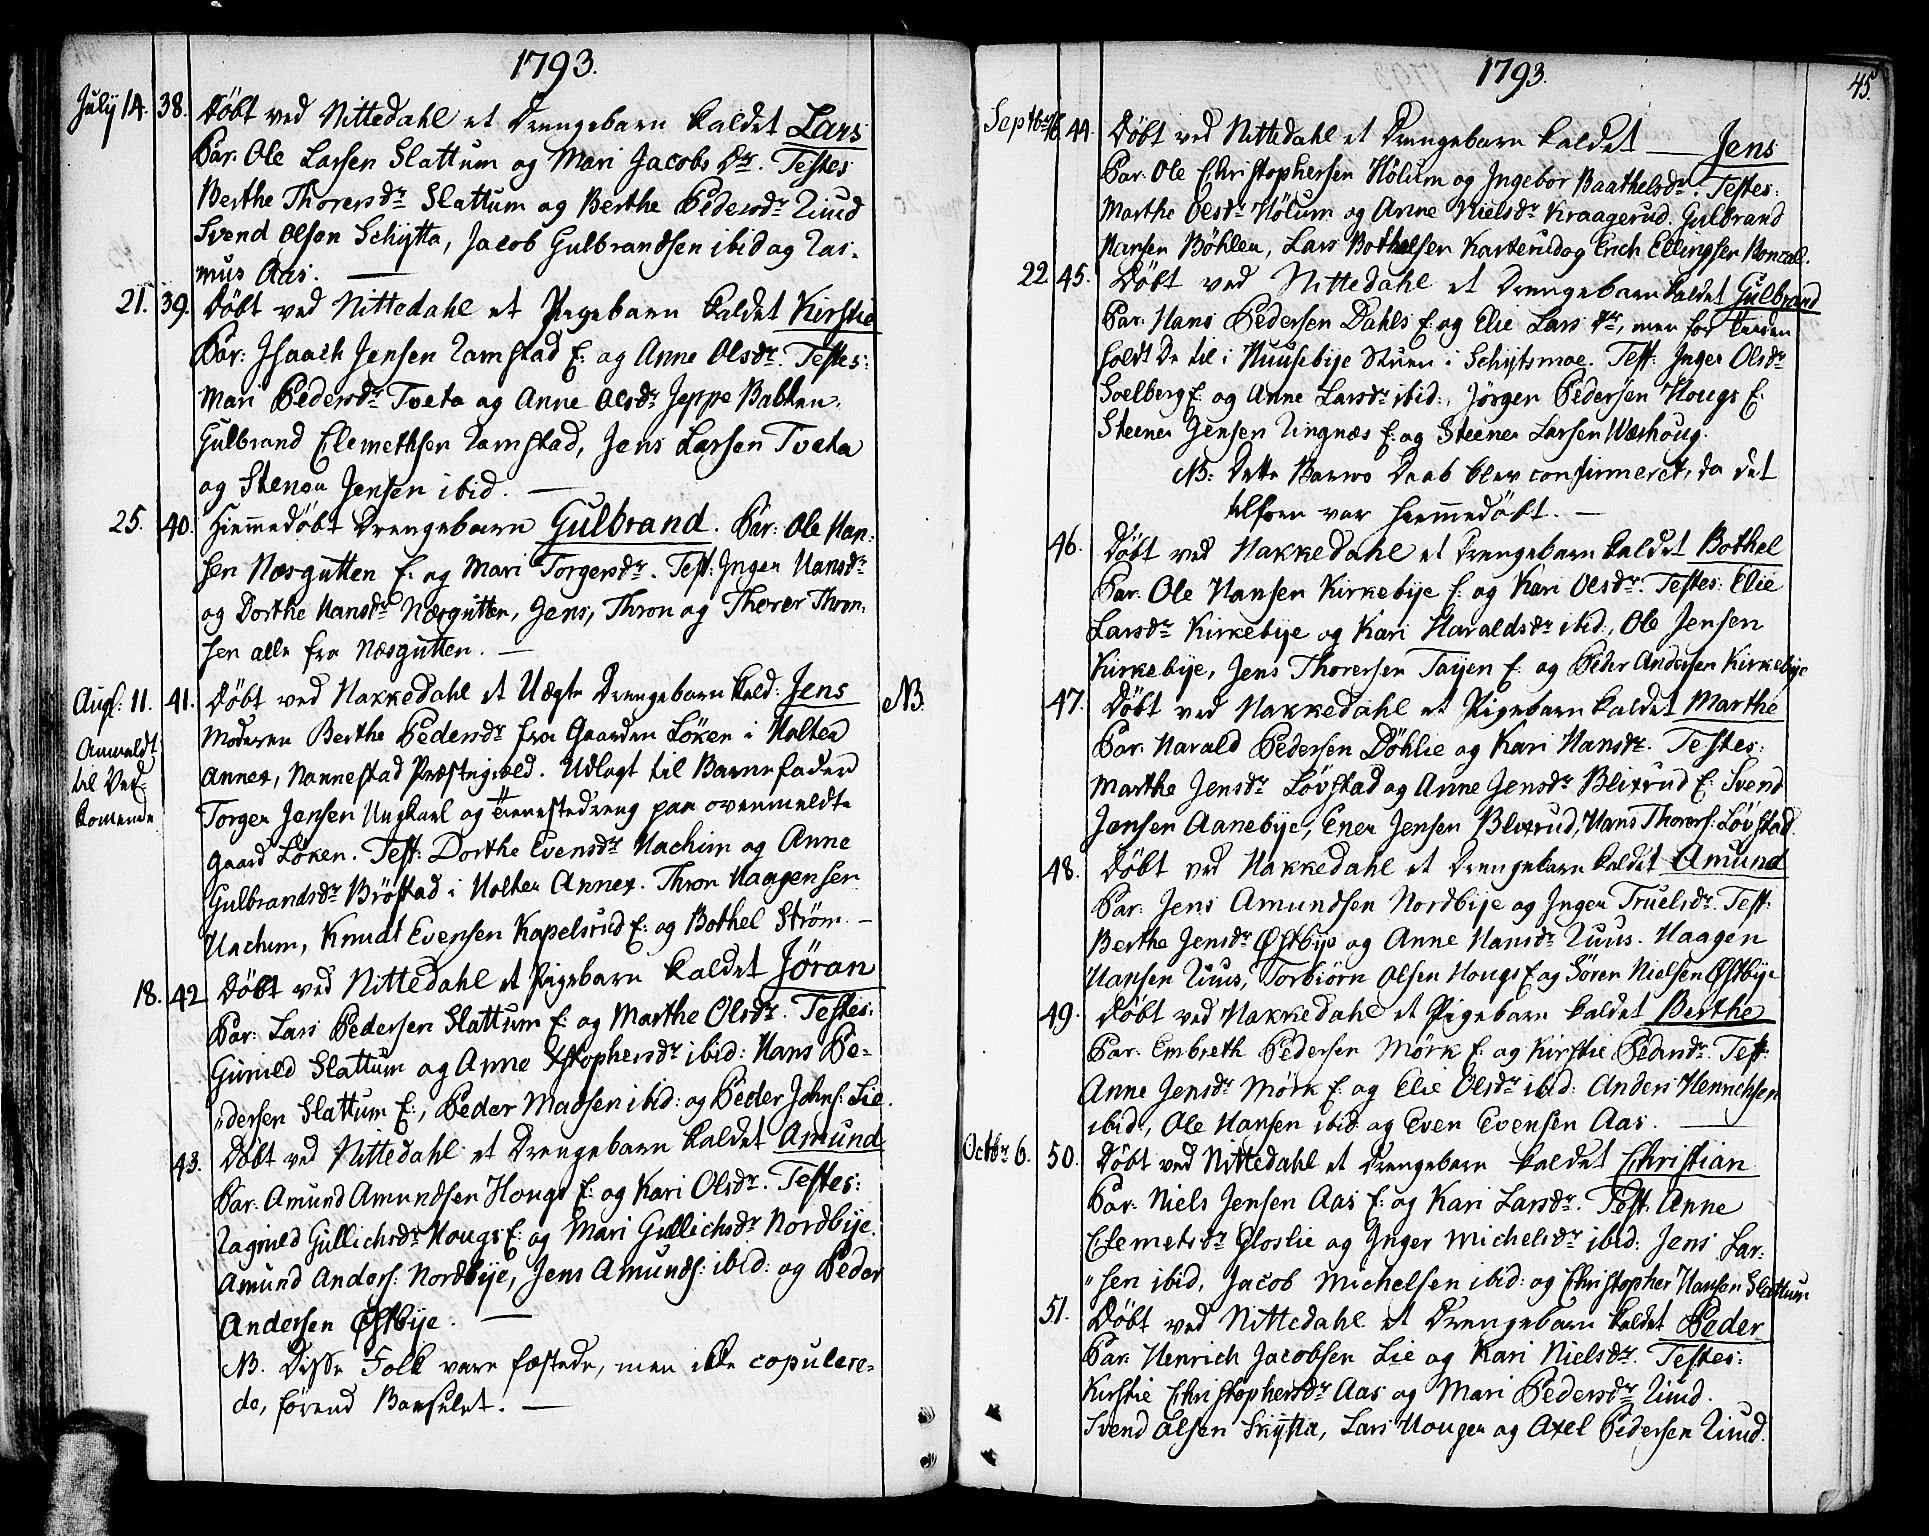 1793.
July 14. 38. Döbt ved Nittedahl et Drengebarn kaldet Lars
Par: Ole Larsen Slattum og Mari Jacobs Dr. Testes
Berthe Thorersdr Slattum og Berthe Pedersdr Ruud
Svend Olsen Schytta, Jacob Gulbrandsen ibid og Ras-
mus Aas.
21. 39. Döbt ved Nittedahl et Pigebarn kaldet Kirstie
Par: Isaach Jensen Ramstad E: og Anne Olsdr. Testes:
Mari Pedersdr Tveta og Anne Olsdr Jeppe Bakken.
Gulbrand Clemethsen Ramstad, Jens Larsen Tveta
og Stenou Jensen ibid.
25. 40. Hiemmedöbt Drengebarn Gulbrand. Par: Ole Han-
sen Næsgutten E: og Mari Torgersdr. Test: Inger Hansdr
og Dorthe Hansdr Næsgutten, Jens, Thron og Thorer Thron-
sen alle fra Næsgutten.
Augs: 11. 41. Döbt ved Hakkedahl et Uægte Drengebarn kald: Jens NB.
Anmeldt
til Ved-
komende
Moderen Berthe Pedersdr fra Gaarden Löken i Holter
Annex, Nannestad Præstegield. Udlagt til Barnefader
Torger Jensen Ungkarl og Tienestedreng paa ovenmeldte
Gaard Löken. Test: Dorthe Evensdr Hachim og Anne
Gulbrandsdr Bröstad i Holter Annex. Thron Haagensen
Hachum, Knudt Evensen Kapelsrud E: og Bothel Ström.
18. 42 Döbt ved Nittedahl et Pigebarn kaldet Jöran
Par: Lars Pedersen Slattum E: og Marthe Olsdr. Testes:
Gunild Slattum og Anne Xstophersdr ibid: Hans Pe-
dersen Slattum E:, Peder Madsen ibid: og Peder Johns: Lie.
43. Döbt ved Nittedahl et Drengebarn kaldet Amund
Par: Amund Amundsen Hougs E: og Kari Olsdr. Testes:
Ragnild Gullichsdr Hougs E: og Mari Gullichsdr Nordbije.
Amund Anders: Nordbije, Jens Amunds: ibid: og Peder
Andersen Østbije.
NB. Disse Folk vare fæstede, men ikke copulere-
de, förend Barselet.
1793. 45.
Septbr 16. 44. Döbt ved Nittedahl et Drengebarn kaldet Jens
Par: Ole Christophersen Hölum og Ingebor Baathelsdr. Testes:
Marthe Olsdr Hölum og Anne Nielsdr Kraagerud. Gulbrand
Hansen Böhler, Lars Bothelsen Karterud og Erich Ellingsen
22. 45. Döbt ved Nittedahl et Drengebarn kaldet Gulbrand
Par: Hans Pedersen Dahls E: og Elie Lars Dr, men for Tiden
holdt De til i Huusebije Stuen i Schytsmoe. Test: Inger Olsdr
Soelberg E: og Anne Larsdr ibid:, Jörgen Pedersen Hougs E:
Steener Jensen Ringnæs E: og Steener Larsen Wærhoug.
NB: Dette Barns Daab blev confirmeret, da det
tilforn var hiemmedöbt.
46. Döbt ved Hakkedahl et Drengebarn kaldet Bothel
Par: Ole Hansen Kirkebije E: og Kari Olsdr. Testes: Elie
Larsdr Kirkebije og Kari Haraldsdr ibid:, Ole Jensen
Kirkebije, Jens Thorersen Tøyen E: og Peder Andersen Kirkebije
47. Döbt ved Hakkedahl et Pigebarn kaldet Marthe
Par: Harald Pedersen Döhlie og Kari Hansdr. Testes:
Marthe Jensdr Lövstad og Anne Jensdr Blixrud E: Svend
Jensen Aanebije, Ener Jensen Blixrud, Hans Thorers: Lövstad.
48. Döbt ved Hakkedahl et Drengebarn kaldet Amund
Par: Jens Amundsen Nordbije og Inger Truelsdr. Test:
Berthe Jensdr Østbije og Anne Hansdr Ruus. Haagen
Hansen Ruus, Torbiörn Olsen Hougs E: og Sören Nielsen Østbije
49. Döbt ved Hakkedahl et Pigebarn kaldet Berthe
Par: Embreth Pedersen Mörk E: og Kirstie Pedersdr. Test:
Anne Jensdr Mörk E: og Elie Olsdr ibid: Anders Henrichsen
ibid, Ole Hansen ibid og Even Evensen Aas.
Octbr 6. 50. Döbt ved Nittedahl et Drengebarn kaldet Christian
Par: Niels Jensen Aas E: og Kari Larsdr. Test: Anne
Clemetsdr Gloslie og Inger Michelsdr ibid: Jens Lar-
sen ibid, Jacob Michelsen ibid: og Christopher Hansen Slattum
51. Döbt ved Nittedahl et Drengebarn kaldet Peder
Par: Henrich Jacobsen Lie og Kari Nielsdr. Testes:
Kirstie Christophersdr Aas og Mari Pedersdr Ruud.
Svend Olsen Skytta, Lars Houger og Axel Pedersen Ruud.